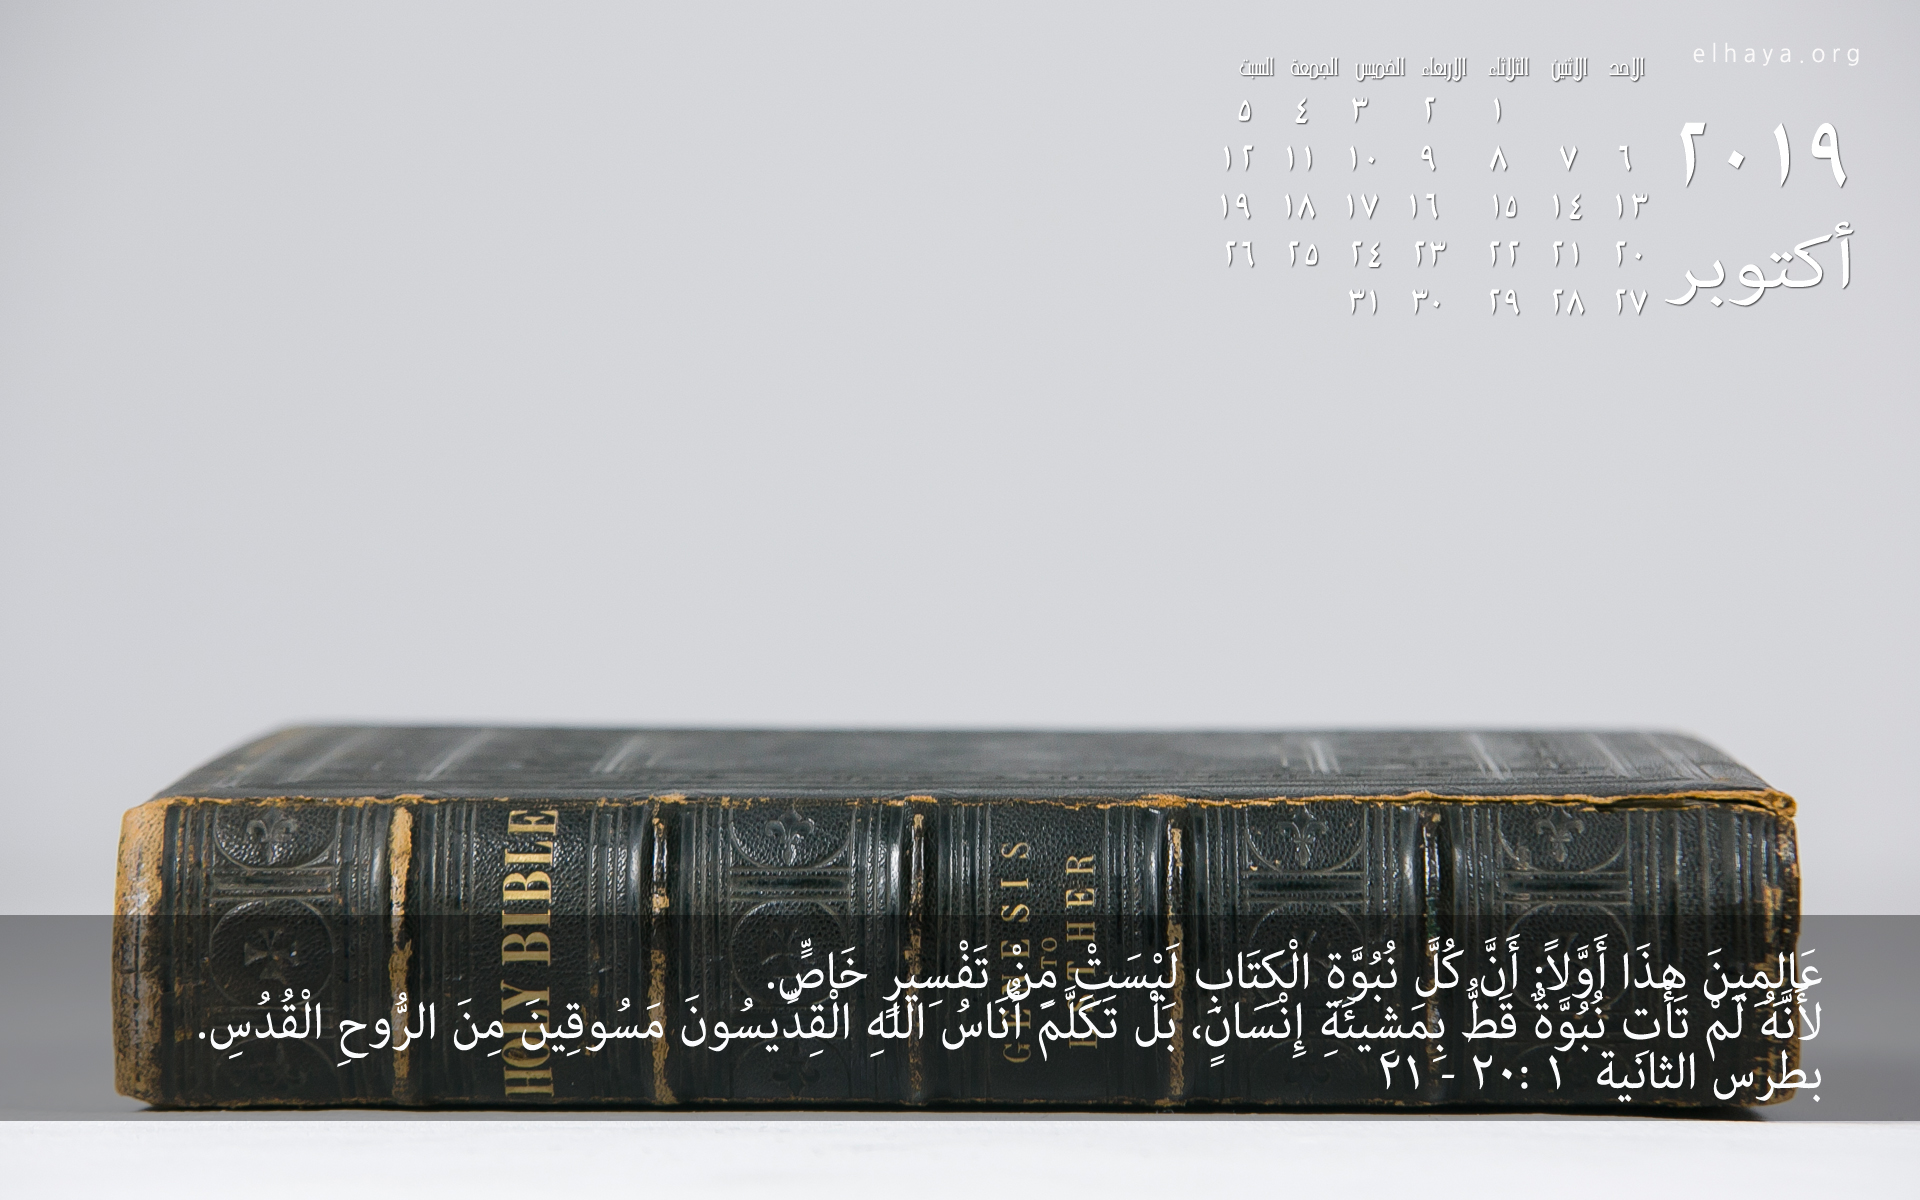 elhaya.org
٢٠١٩
أكتوبر
الاحد الاثنين الثلاثاء الاربعاء الخميس الجمعة السبت
١ ٢ ٣ ٤ ٥
٦ ٧ ٨ ٩ ١٠ ١١ ١٢
١٣ ١٤ ١٥ ١٦ ١٧ ١٨ ١٩
٢٠ ٢١ ٢٢ ٢٣ ٢٤ ٢٥ ٢٦
٢٧ ٢٨ ٢٩ ٣٠ ٣١
HOLY BIBLE
GENESIS
TO
ESTHER
عَالِمِينَ هذَا أَوَّلاً: أَنَّ كُلَّ نُبُوَّةِ الْكِتَابِ لَيْسَتْ مِنْ تَفْسِيرٍ خَاصٍّ.
لأَنَّهُ لَمْ تَأْتِ نُبُوَّةٌ قَطُّ بِمَشِيئَةِ إِنْسَانٍ، بَلْ تَكَلَّمَ أُنَاسُ اللهِ الْقِدِّيسُونَ مَسُوقِينَ مِنَ الرُّوحِ الْقُدُسِ.
بطرس الثانية ١ :٢٠ - ٢١